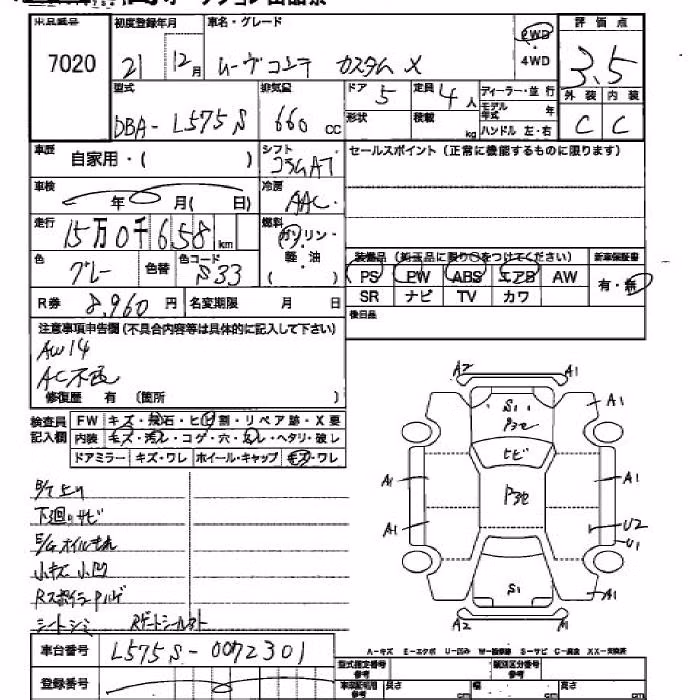 出品番号 初度登録年月 車名・グレード 評価点
7020 21 12月 ムーヴコンテ カスタム X 2WD 4WD 3.5
型式 排気量 ドア 5 定員 4人 ディーラー・並行
DBA-L575S 660cc 形状 積載 kg モデル年式 年 ハンドル 左・右
外装 内装
C C
車歴 自家用・( ) シフト コラムAT セールスポイント(正常に機能するものに限ります)
車検 年 月( 日) 冷房 AAC
走行 15万0千658km 燃料 ガソリン・軽油 ( )
色 グレー 色替 色コード S33
装備品(純正品に限り○をつけてください) 新車保証書
PS PW ABS エアB AW 有・無
SR ナビ TV カワ
R券 8,960円 名変期限 月 日 後日品
注意事項申告欄(不具合内容等は具体的に記入して下さい)
AW14
AC不良
修復歴 有 (箇所 )
検査員記入欄 FW キズ・飛石・ヒビ割・リペア跡・X要
内装 キズ・汚レ・コゲ・穴・スレ・ヘタリ・破レ
ドアミラー キズ・ワレ ホイール・キャップ キズ・ワレ
下廻りサビ
E/Gオイルもれ
小キズ小凹
シートシミ
A2 A1
S1 A1
P3
ヒビ
A1 P3 A1
A1 U2
U1
S1 A1
A2
A-キズ E-エクボ U-凹み W-補修跡 S-サビ C-腐食 XX-交換済
車台番号 L575S-0072301
登録番号
型式指定番号 参考 類別区分番号 参考
長さ cm 幅 cm 高さ cm